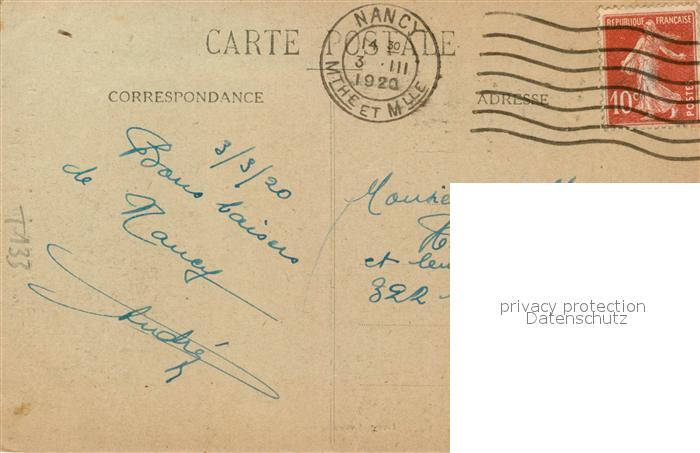 CARTE POSTALE
NANCY
14 30
3 III
1920
MTHE ET MLLE
REPUBLIQUE FRANÇAISE
10c
POSTES
CORRESPONDANCE
ADRESSE
3/3/20
Bons baisers
de Nancy
André
et
322
T133
privacy protection
Datenschutz